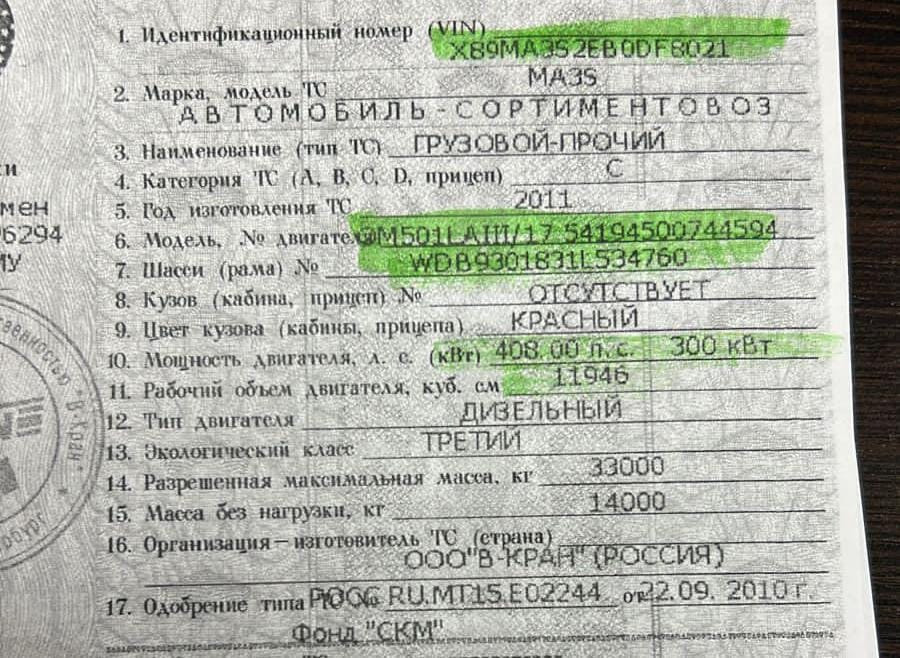 1. Идентификационный номер (VIN) X89MA3S2EB0DF8021
MA3S
2. Марка, модель ТС
АВТОМОБИЛЬ-СОРТИМЕНТОВОЗ
3. Наименование (тип ТС) ГРУЗОВОЙ-ПРОЧИЙ
4. Категория ТС (A, B, C, D, прицеп) C
5. Год изготовления ТС 2011
6. Модель, № двигателя OM501LAIII/17 54194500744594
7. Шасси (рама) № WDB9301831L534760
8. Кузов (кабина, прицеп) № ОТСУТСТВУЕТ
9. Цвет кузова (кабины, прицепа) КРАСНЫЙ
10. Мощность двигателя, л. с. (кВт) 408.00 л. с. 300 кВт
11. Рабочий объем двигателя, куб. см 11946
12. Тип двигателя ДИЗЕЛЬНЫЙ
13. Экологический класс ТРЕТИЙ
14. Разрешенная максимальная масса, кг 33000
15. Масса без нагрузки, кг 14000
16. Организация–изготовитель ТС (страна)
ООО"В-КРАН" (РОССИЯ)
17. Одобрение типа РОСС RU.MT15.E02244 от 22.09. 2010 г.
Фонд "СКМ"
и
мен
6294
МУ
"В-Кран"